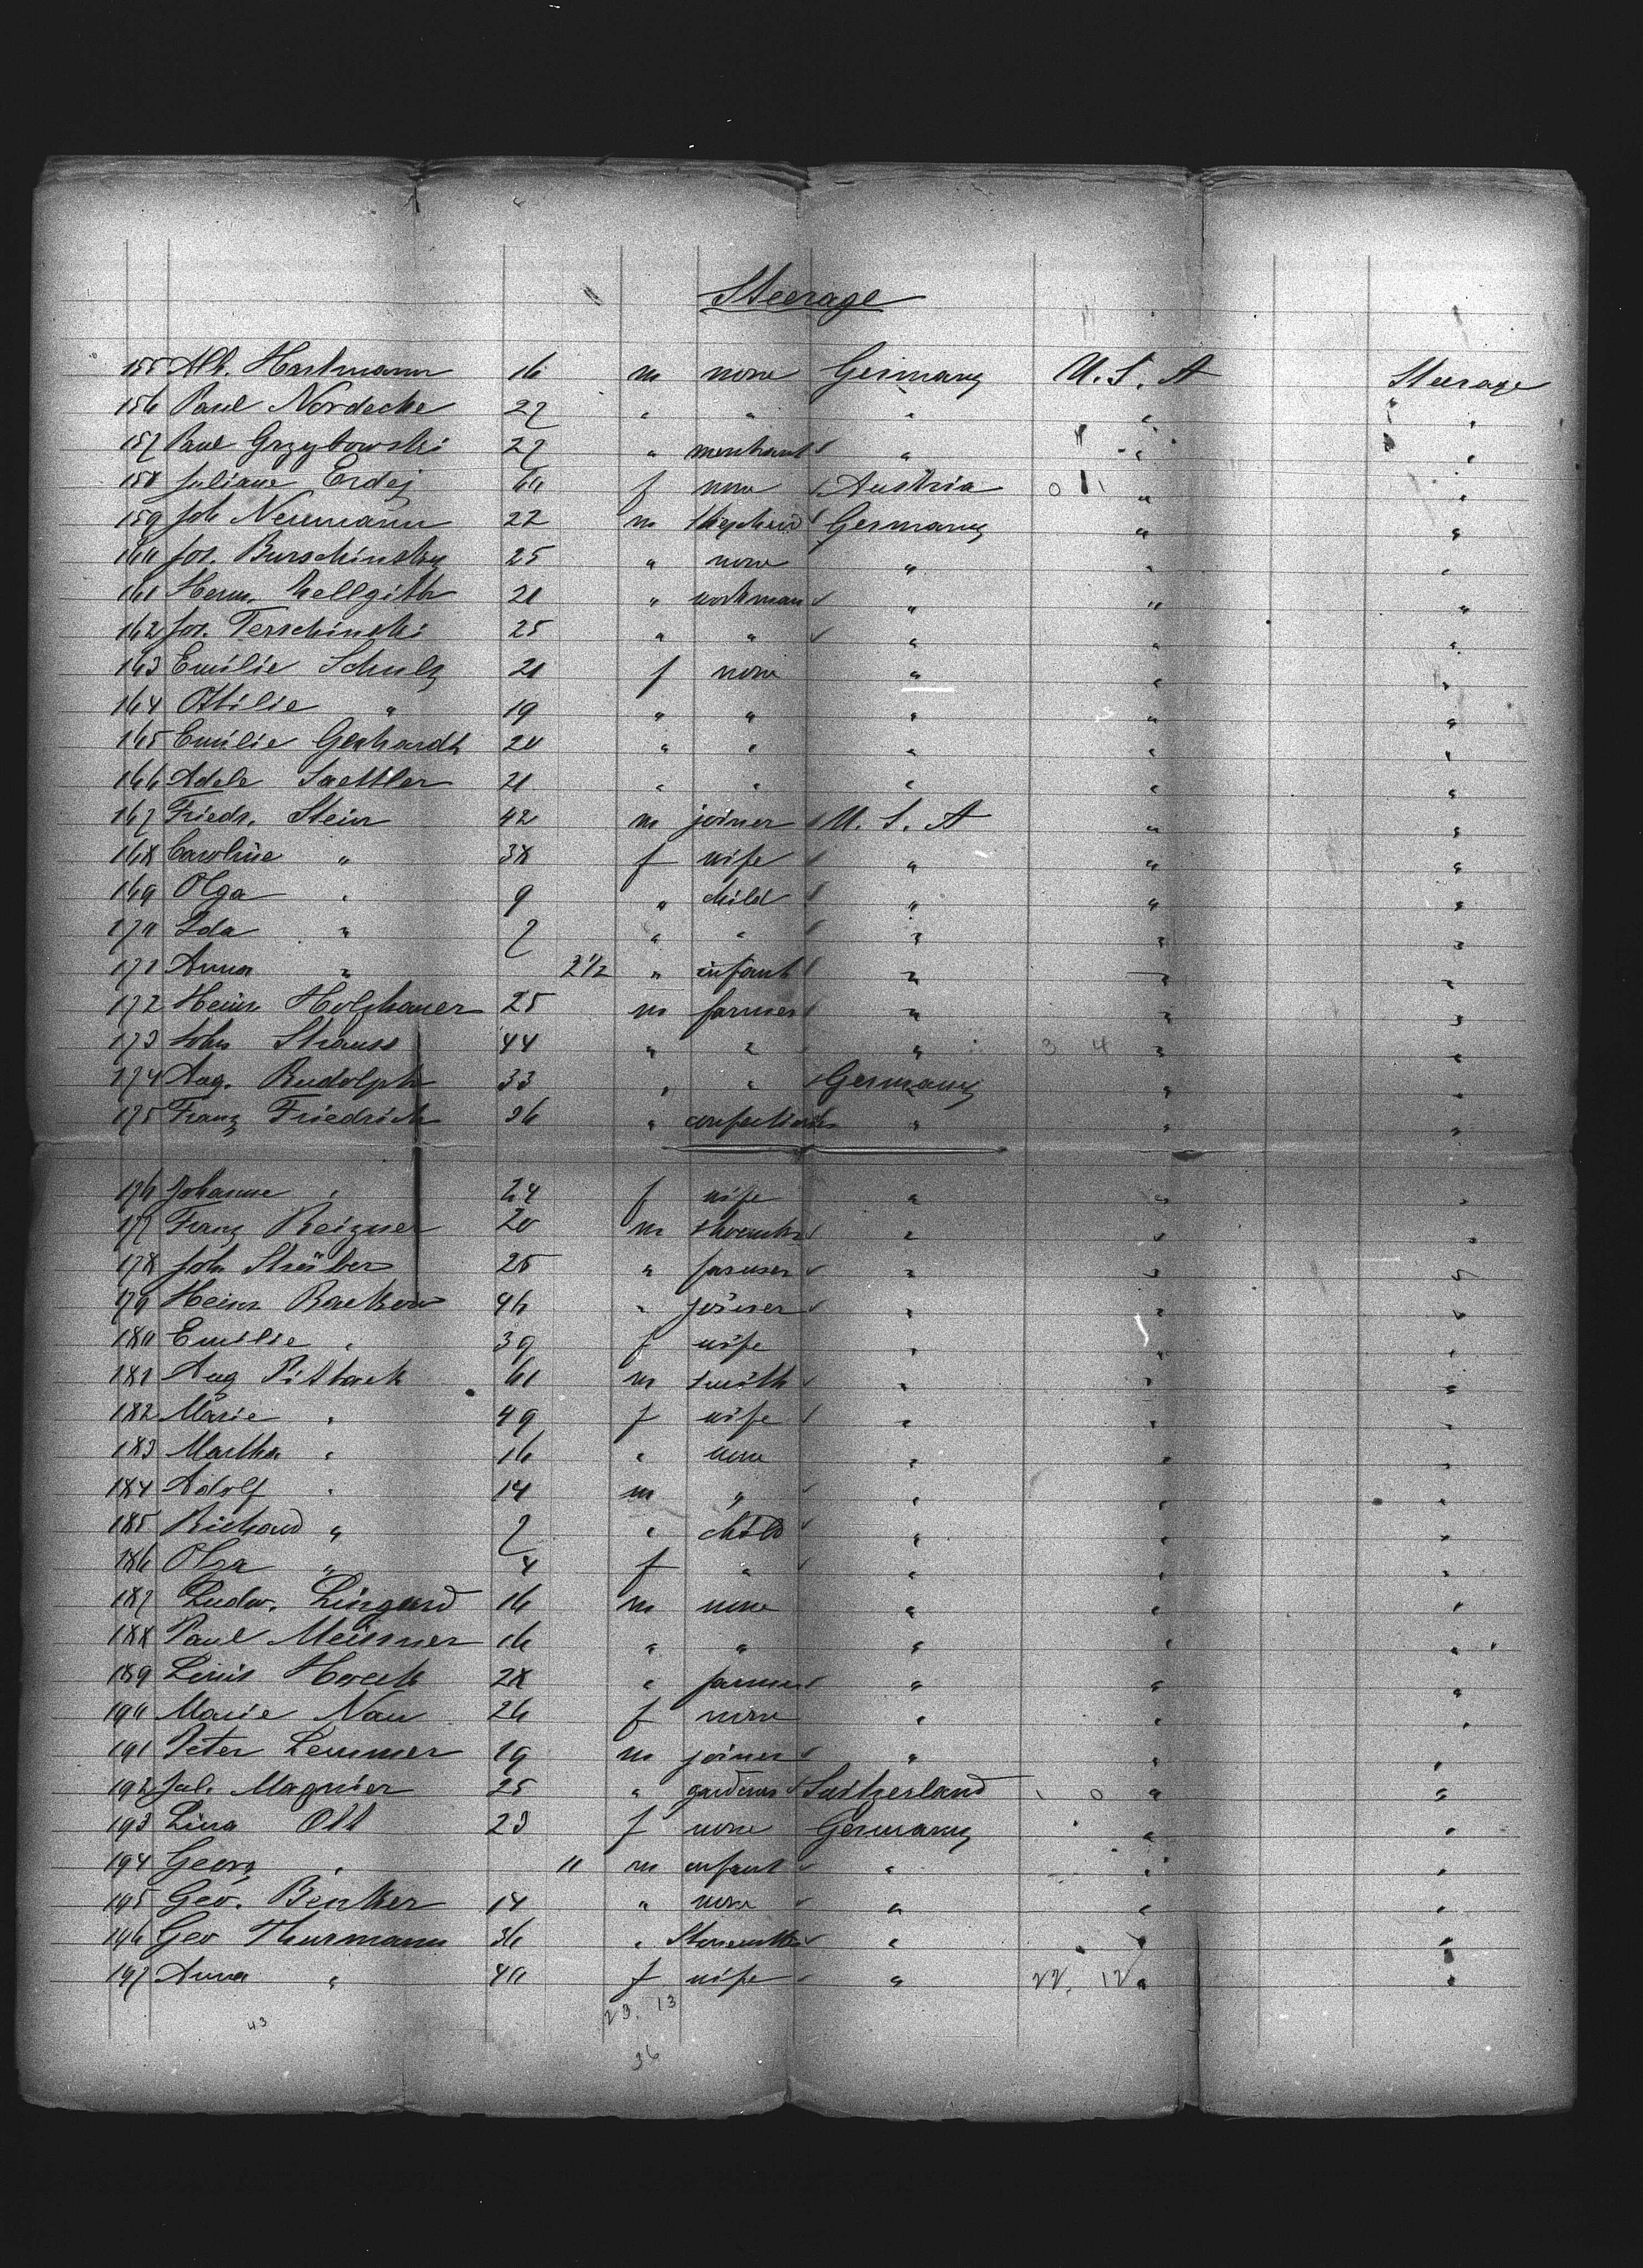 Steerage
155 Alb. Hartmann 16 m none Germany U. S. A Steerage
156 Paul Nordecke 27 " " " " "
157 Paul Grzybowski 27 " merchant " " "
158 Juliane Erdej 60 f none Austria "  "
159 Joh Neumann 22 m Germany " "
160 Jos. Burschinsky 25 " none " " "
161 Herm. Hellgith 21 " workman " " "
162 Jos. Terschinski 25 " " " " "
163 Emilie Schulz 21 f none " " "
164 Ottilie " 19 " " " " "
165 Emilie Gerhardt 20 " " " " "
166 Adele Saettler 21 " " " " "
167 Friedr. Stein 42 m joiner U. S. A " "
168 Caroline " 38 f wife " " "
169 Olga " 9 " child " " "
170 Ida " 7 " " " " "
171 Anna " 2 1/2 " infant " " "
172 Heinr Holzhauer 25 m farmer " " "
173 John Strauss 44 " " " 3 4 " "
174 Aug. Rudolph 33 " " Germany " "
175 Franz Friedrich 26 " " " "
176 Johanne " 24 f wife " " "
177 Franz Reizner 20 m " " "
178 Joh Ströber 25 " farmer " " "
179 Heinr Backow 46 " joiner " " "
180 Emilie " 39 f wife " " "
181 Aug Pittack 61 m smith " " "
182 Marie " 49 f wife " " "
183 Martha " 16 " none " " "
184 Adolf " 14 m " " " "
185 Richard " 7 " child " " "
186 Olga " 4 f " " " "
187 Ludw. Lingard 16 m none " " "
188 Paul Meissner 16 " " " " "
189 Louis Hoeck 28 " farmer " " "
190 Marie Nau 26 f none " " "
191 Peter Lemmer 19 m joiner " " "
192 Jul. Magnier 25 " gardener Switzerland 0 " "
193 Lina Ott 23 f none Germany " "
194 Georg " 11 m infant " " "
195 Geo. Benker 14 " none " " "
196 Geo Thurmann 36 " " " "
197 Anna " 40 f wife " 22. 12 " "
43 23. 13
36